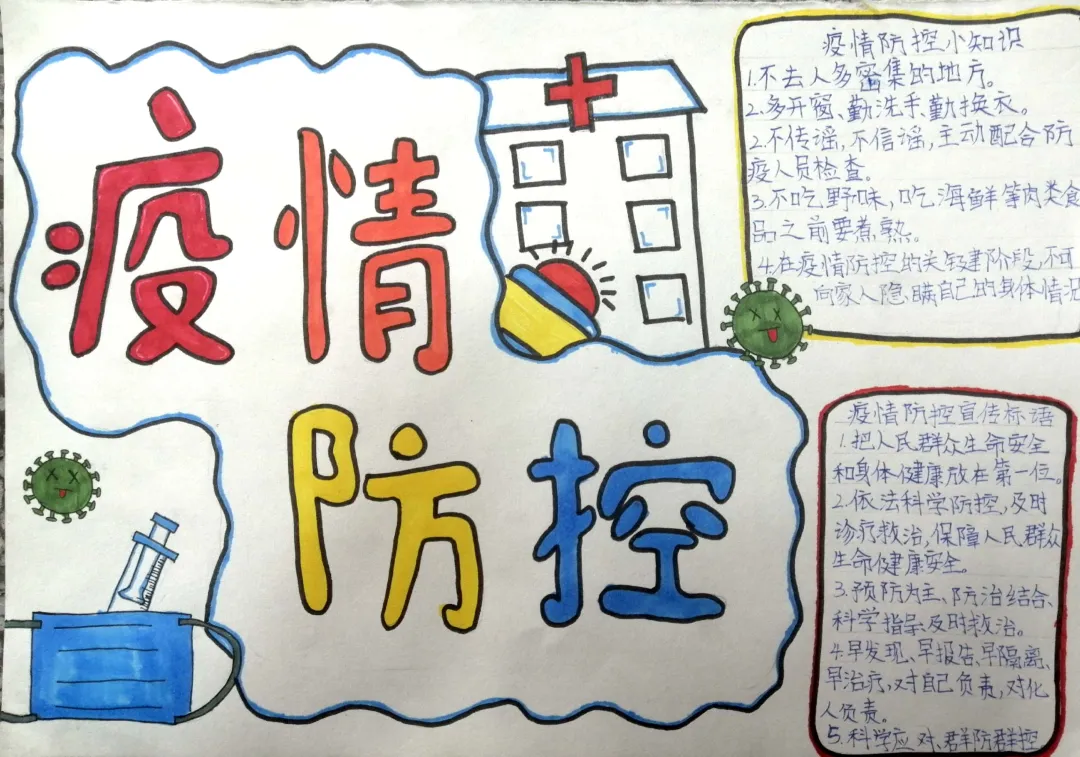 疫情
防控
疫情防控小知识
1.不去人多密集的地方。
2.多开窗、勤洗手、勤换衣。
2.不传谣,不信谣,主动配合防
疫人员检查。
3.不吃野味,吃海鲜等肉类食
品之前要煮熟。
4.在疫情防控的关键阶段,不可
向家人隐瞒自己的身体情况
疫情防控宣传标语
1.把人民群众生命安全
和身体健康放在第一位。
2.依法科学防控,及时
诊疗救治,保障人民群众
生命健康安全。
3.预防为主、防治结合、
科学指导、及时救治。
4.早发现、早报告、早隔离、
早治疗,对自己负责,对化
人负责。
5.科学应对、群防群控